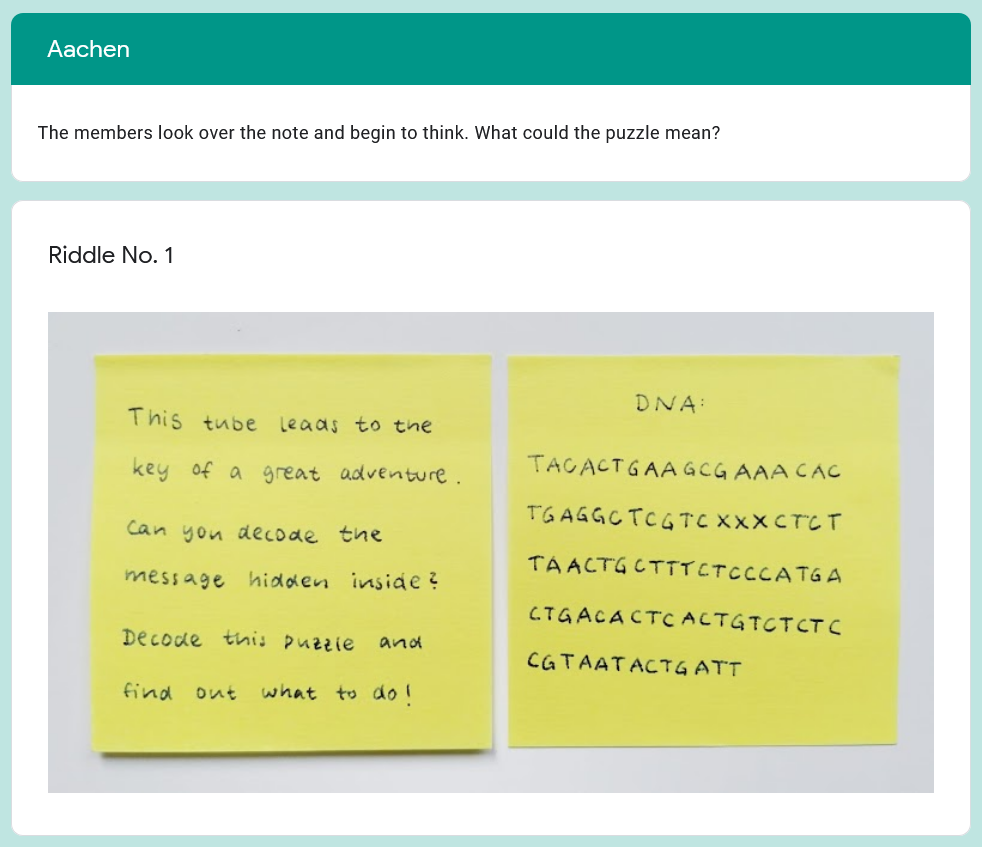 Aachen
The members look over the note and begin to think. What could the puzzle mean?
Riddle No. 1
This tube leads to the
key of a great adventure.
Can you decode the
message hidden inside?
Decode this puzzle and
find out what to do!
DNA:
TACACTGAAGCGAAACAC
TGAGGCTCGTCXXXCTCT
TAACTGCTTTCTCCCATGA
CTGACACTCACTGTCTCTC
CGTAATACTGATT